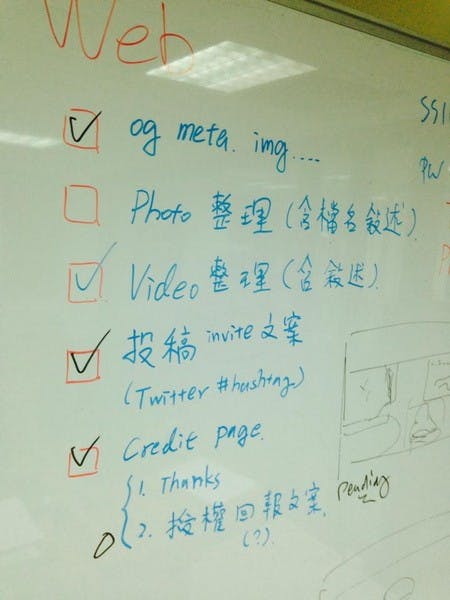 Web
og meta. img....
Photo 整理 (含檔名敘述)
Video 整理 (含敘述)
投稿 invite 文案
(Twitter #hashtag)
Credit page.
1. Thanks
2. 授權回報文案
(?)
pending
PW